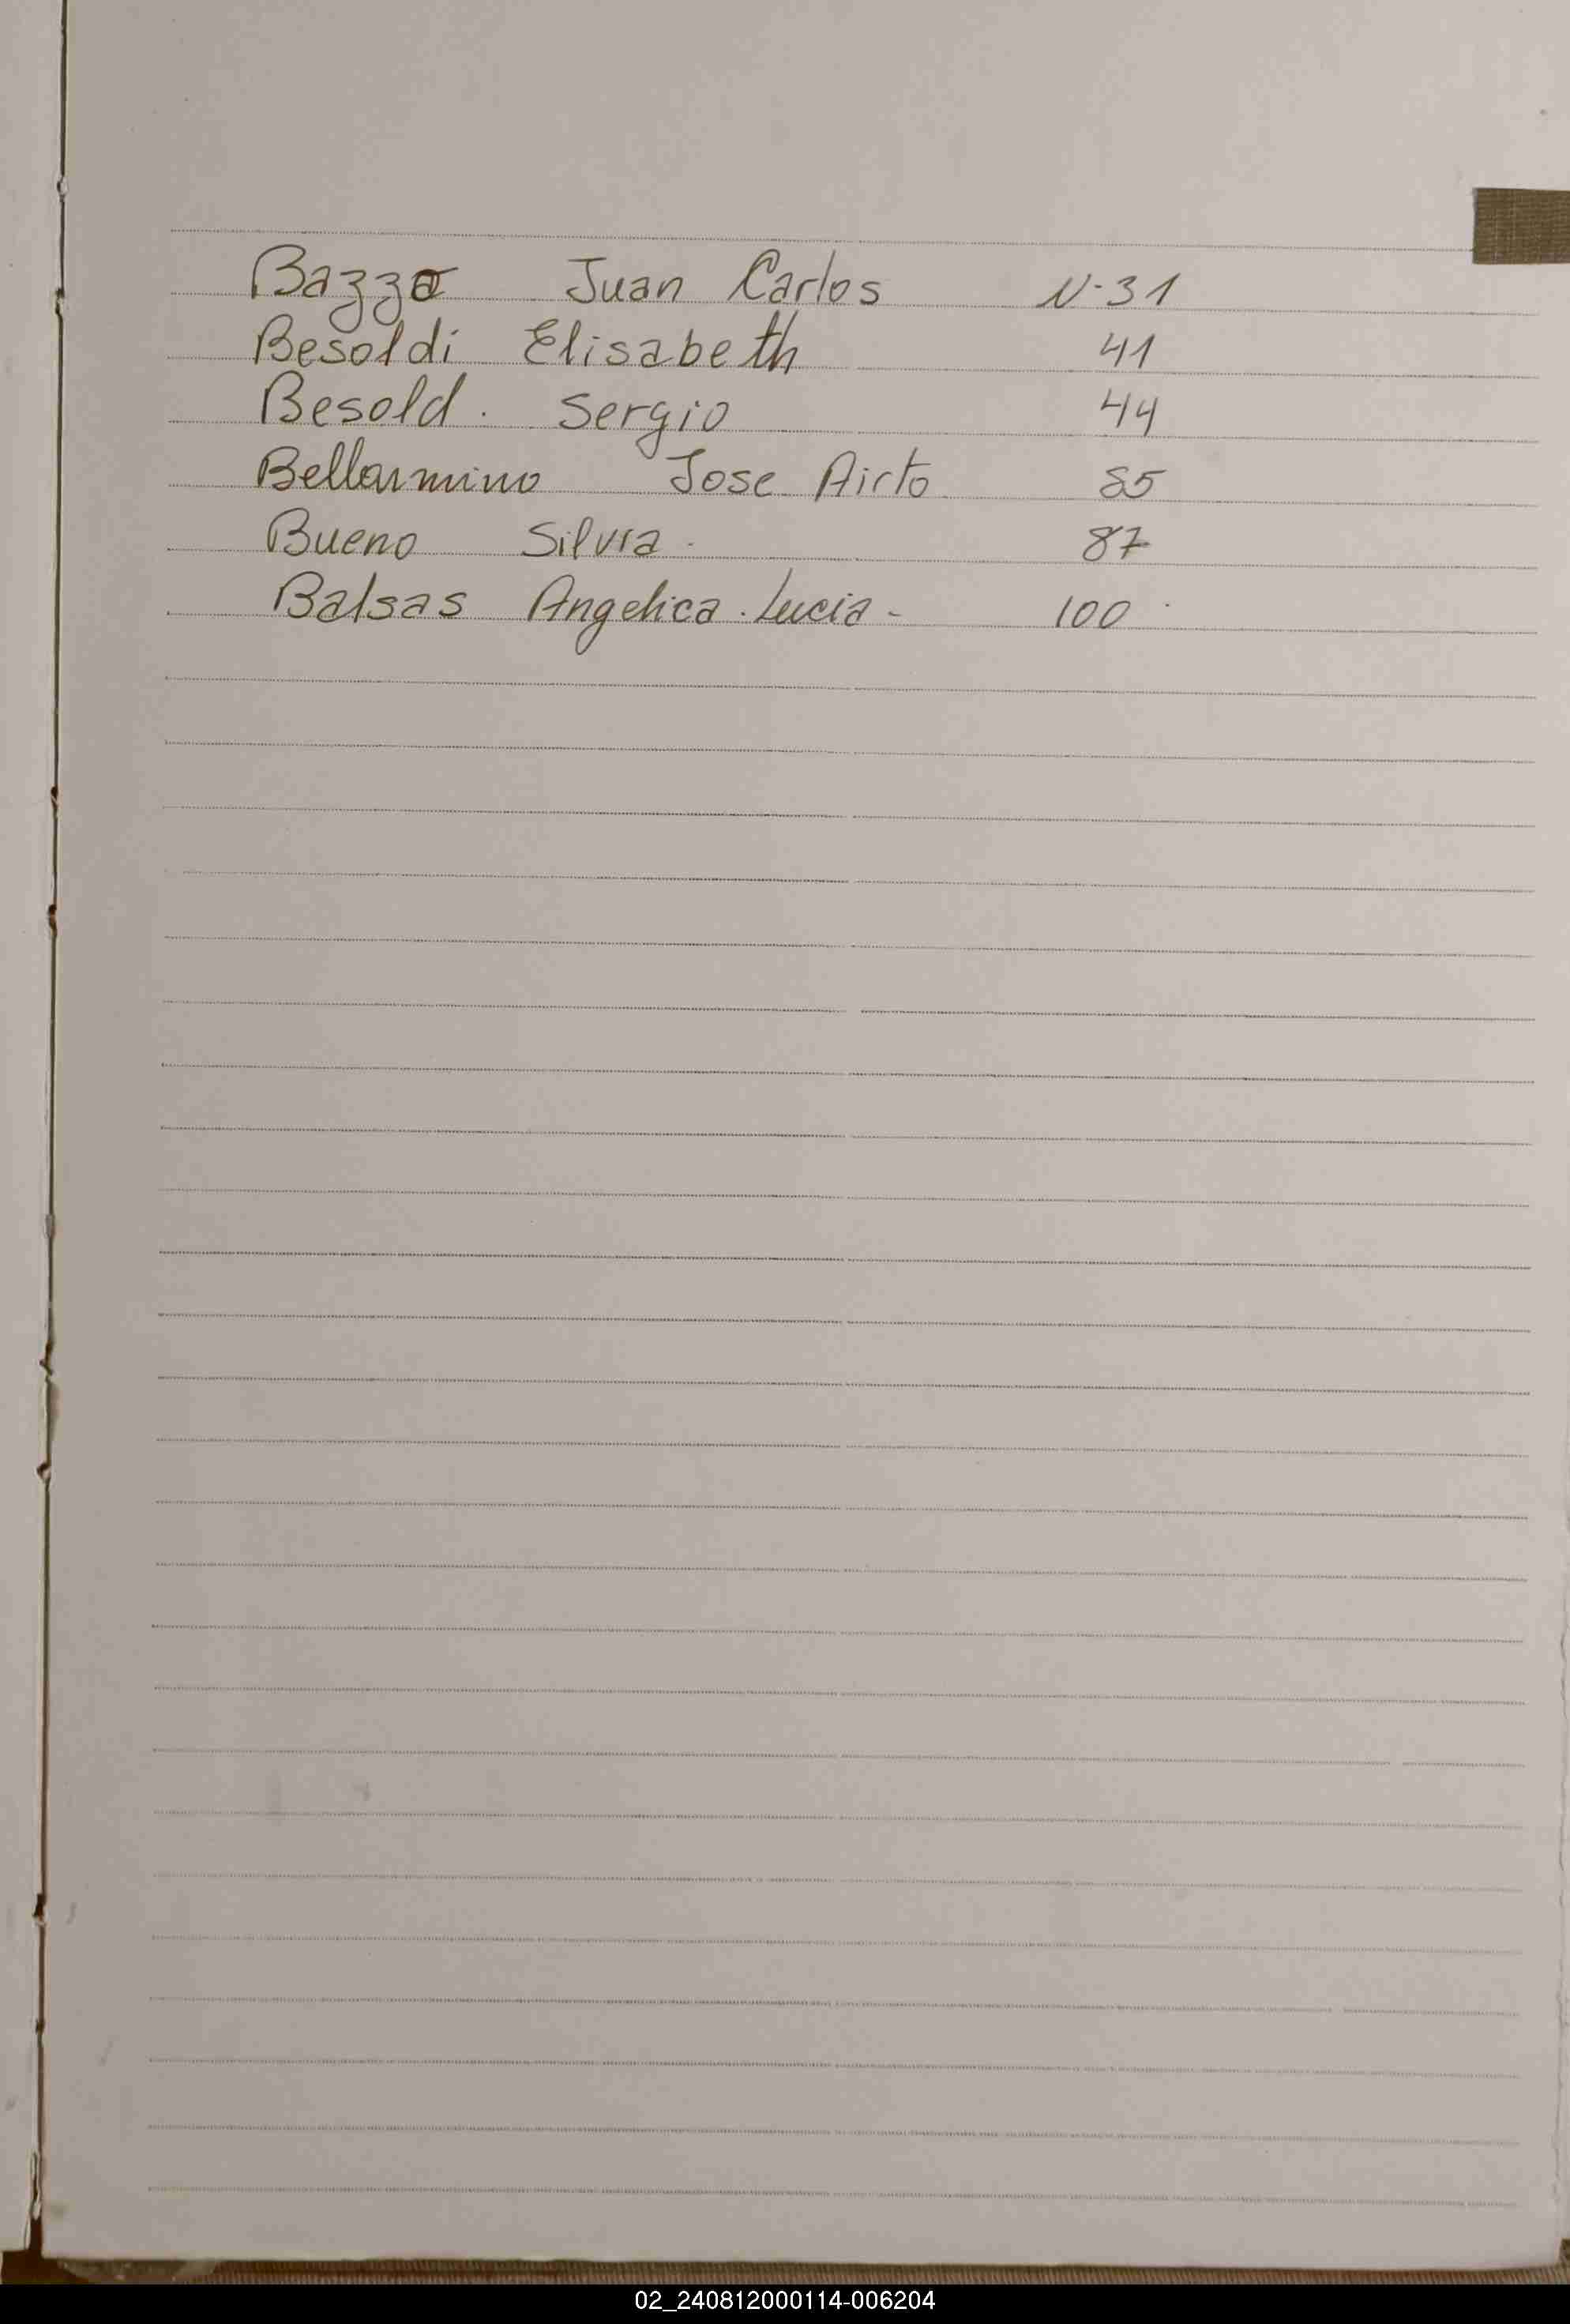 Bazzo Juan Carlos N-31
Besoldi Elisabeth 41
Besold. Sergio 44
Bellarmino Jose Airto 85
Bueno Silvia. 87
Balsas Angelica. Lucia- 100
02_240812000114-006204